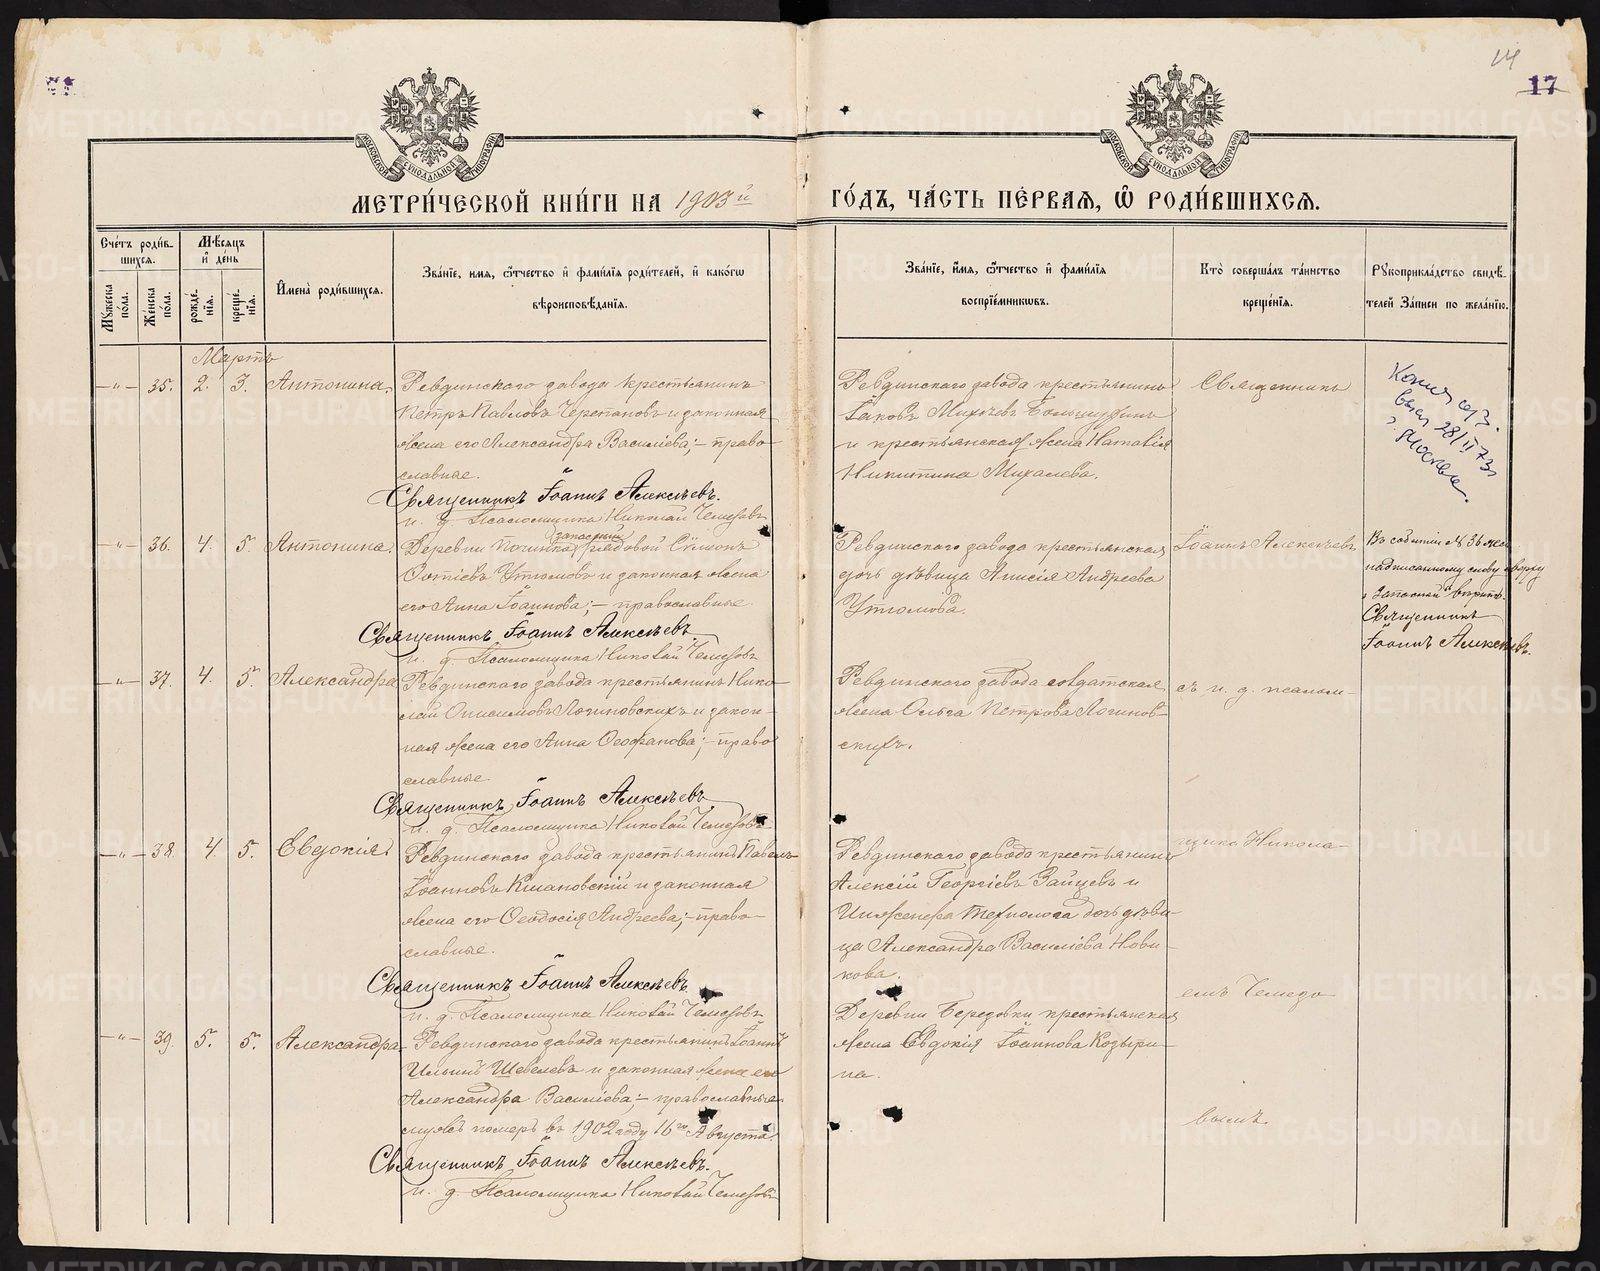 14
17
МОСКОВСКОЙ СѴНОДАЛЬНОЙ ТИПОГРАФІИ
МОСКОВСКОЙ СѴНОДАЛЬНОЙ ТИПОГРАФІИ
МЕТРИ́ЧЕСКОЙ КНИ́ГИ НА 1903й ГО́ДЪ, ЧА́СТЬ ПЕ́РВАЯ, Ѽ РОДИ́ВШИХСЯ.
Сче́тъ роди́в-
шихся.
Мужеска пола.
Же́нска пола.
Мѣ́сяцъ
и҆ де́нь
рожде́-
нія.
креще́-
нія.
И҆мена̀ роди́вшихся.
Зва́ніе, имя, ѻ҆́тчество и҆ фами́лія роди́телей, и҆ како́гѡ
вѣроисповѣ́данія.
Зва́ніе, и҆́мя, ѻ҆́тчество и҆ фами́лія
воспріе́мниковъ.
Кто̀ соверша́лъ та́инство
креще́нія.
Рукоприкла́дство свидѣ́-
телей За́писи по жела́нію.
Мартъ
—"— 35. 2. 3. Антонина.
Ревдинскаго завода крестьянинъ
Петръ Павловъ Черепановъ и законная
жена его Александра Василіева; – право-
славные.
Священникъ Іоаннъ Алексѣевъ.
и. д. Псаломщика Николай Чемезовъ
Ревдинскаго завода крестьянинъ
Іаковъ
и крестьянская жена Наталія
Никитина Михалева.
Священникъ
Копия
выс 28/II 73г
г. Москва.
—"— 36. 4. 5. Антонина.
запасный
Деревни Починка рядовой Сѵмеонъ
Зотіевъ Утюмовъ и законная жена
его Анна Іоаннова; – православные.
Священникъ Іоаннъ Алексѣевъ
и. д. Псаломщика Николай Чемезовъ
Ревдинскаго завода крестьянская
дочь дѣвица Анисія Андреева
Утюмова.
Іоаннъ Алексѣевъ
Въ событіи № 36
надписанному слову сверху
"запасный" вѣрить.
Священникъ
Іоаннъ Алексѣевъ.
—"— 37. 4. 5. Александра
Ревдинскаго завода крестьянинъ Нико-
лай Онисимовъ Логиновскихъ и закон-
ная жена его Анна Ѳеофанова; – право-
славные.
Священникъ Іоаннъ Алексѣевъ
и. д. Псаломщика Николай Чемезовъ
Ревдинскаго завода солдатская
жена Ольга Петрова Логинов-
скихъ.
съ и. д. псалом-
—"— 38. 4. 5. Евдокія
Ревдинскаго завода крестьянинъ Павелъ
Іоанновъ Климовскій и законная
жена его Ѳеодосія Андреева; – право-
славные.
Священникъ Іоаннъ Алексѣевъ
и. д. Псаломщика Николай Чемезовъ
Ревдинскаго завода крестьянинъ
Алексій Георгіевъ Зайцевъ и
Инженера технолога дочь дѣви-
ца Александра Василіева Нови-
кова.
щика Никола-
емъ Чемезо-
—"— 39. 5. 5. Александра
Ревдинскаго завода крестьянинъ Іоаннъ
Ильинъ Шевелевъ и законная жена его
Александра Василіева; – православные.
мужъ померъ въ 1902 году 16го Августа.
Священникъ Іоаннъ Алексѣевъ.
и. д. Псаломщика Николай Чемезовъ
Деревни Бередовки крестьянская
жена Евдокія Іоаннова Козыри-
на.
вымъ.
METRIKI.GASO-URAL.RU